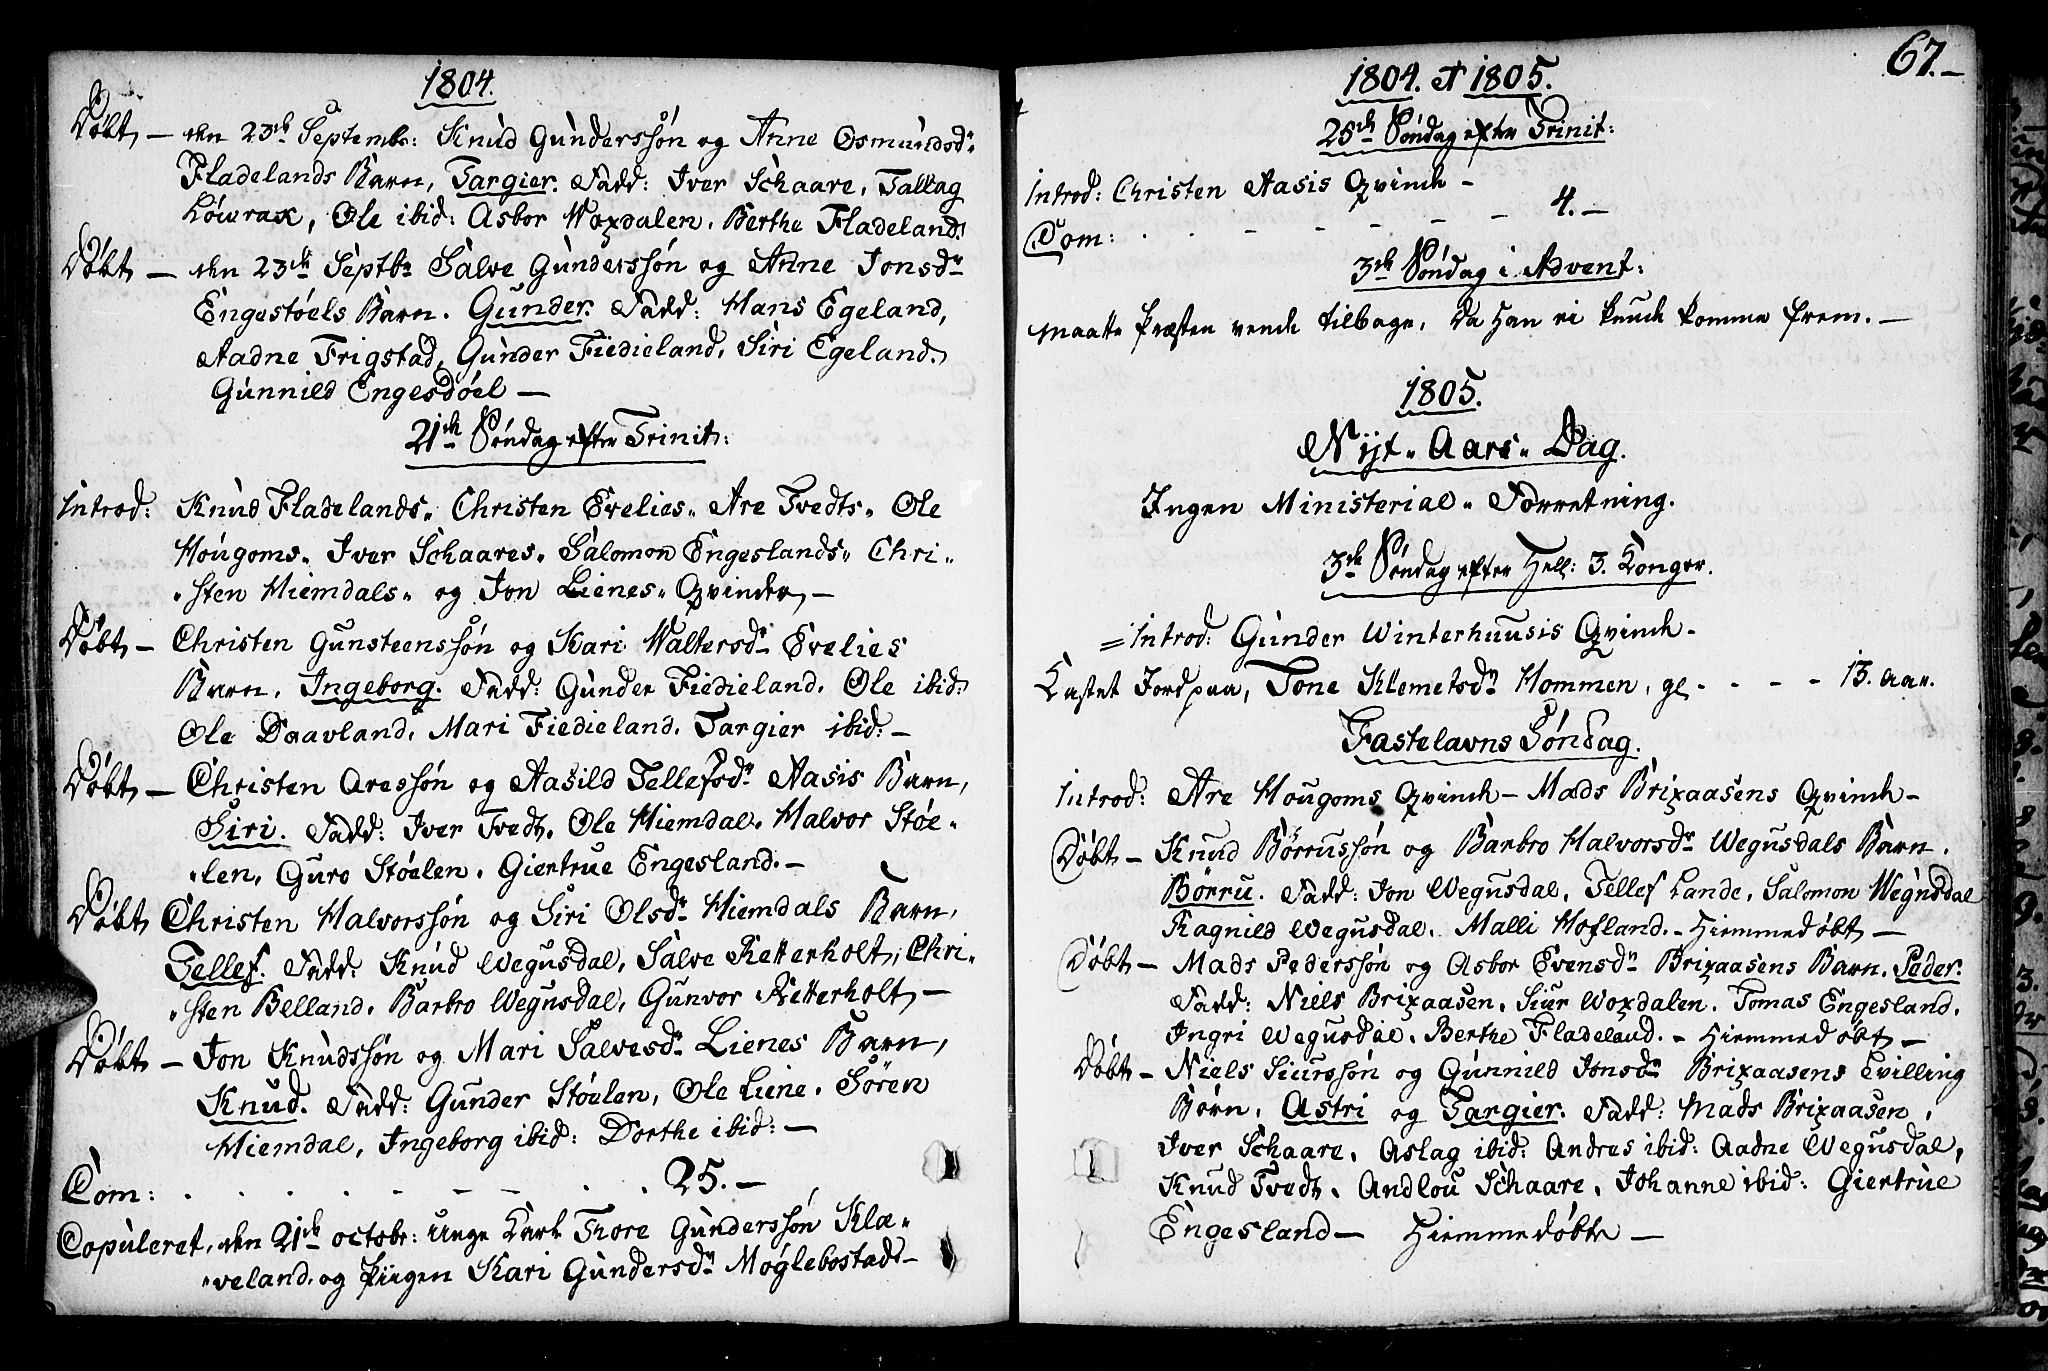 1804.
Döbt – den 23de Septembr: Knud Gunderssön og Anne Osmundsdr
Fladelands Barn, Targier. Fadd: Iver Schaare, Tallag
Löwrax, Ole ibid: Asbor Woxdalen. Berthe Fladeland.
Döbt – den 23de Septbr Salve Gunderssön og Anne Jonsdr
Engestöels Barn. Gunder. Fadd: Hans Egeland,
Aadne Frigstad, Gunder Fiedieland, Siri Egeland.
Gunnild Engesdöel –
21de Söndag efter Trinit:
Introd: Knud Fladelands„ Christen Evelies„ Are Tvedts„ Ole
Hougoms„ Iver Schaares„ Salomon Engeslands„ Chri„
„sten Hiemdals„ og Jon Lienes„ Qvinder –
Döbt – Christen Gunsteenssön og Kari Waltersdr Evelies
Barn. Ingeborg. Fadd: Gunder Fiedieland. Ole ibid:
Ole Daavland. Mari Fiedieland. Targier ibid: –
Döbt – Christen Aressön og Aasild Tellefsdr Aasis Barn,
Siri. Fadd: Iver Tvedt. Ole Hiemdal. Halvor Stöe„
„len, Guro Stöelen. Giertrue Engesland. –
Döbt Christen Halvorssön og Siri Olsdr Hiemdals Barn,
Tellef. Fadd: Knud Wegusdal, Salve Retterholt, Chri„
„sten Belland. Barbro Wegusdal, Gunvor Retterholt –
Döbt – Jon Knudssön og Mari Salvesdr Lienes Barn,
Knud. Fadd: Gunder Stöelen, Ole Liene. Sören
Hiemdal, Ingeborg ibid: Dorthe ibid: –
Com: . . . . – – – . . 25. –
Copuleret, den 21de octobr: unge Karl Thore Gunderssön Kla„
„veland. og Piigen Kari Gundersdr Möglebostads –
67. –
1804. et 1805.
25de Söndag efter Trinit:
Introd: Christen Aasis Qvinde –
Com: . . – – – – – 4. –
3de Söndag i Advent:
maatte Præsten vende tilbage, da Han ei kunde komme frem. –
1805.
Nyt„ Aars„ Dag.
Ingen Ministerial„ Forretning.
3de Söndag efter Hell: 3. Konger.
= Introd: Gunder Winterhuusis Qvinde –
Kastet Jord paa, Tone Klemetsdr Hommen, gl. - - - - 13. aar.
Fastelavns Söndag.
Introd: Are Hougoms Qvinde – Mads Brixaasens Qvinde –
Döbt – Knud Börrussön og Barbro Halvorsdr Wegusdals Barn.
Börru. Fadd: Jon Wegusdal, Tellef Lande, Salomon Wegusdal
Ragnild Wegusdal. Malli Hofland. – Hiemmedöbt –
Döbt – Mads Pederssön og Asbor Evensdr Brixaasens Barn. Peder.
Fadd: Niels Brixaasen, Siur Woxdalen. Tomas Engesland.
Ingri Wegusdal. Berthe Fladeland. – Hiemmedöbt –
Döbt – Niels Siurssön og Gunnild Jonsdr Brixaasens Tvilling
Börn. Astri og Targier. Fadd: Mads Brixaasen,
Iver Schaare. Aslag ibid: Andreas ibid: Aadne Wegusdal,
Knud Tvedt. Andlou Schaare. Johanne ibid: Giertrue
Engesland – Hiemmedöbte –